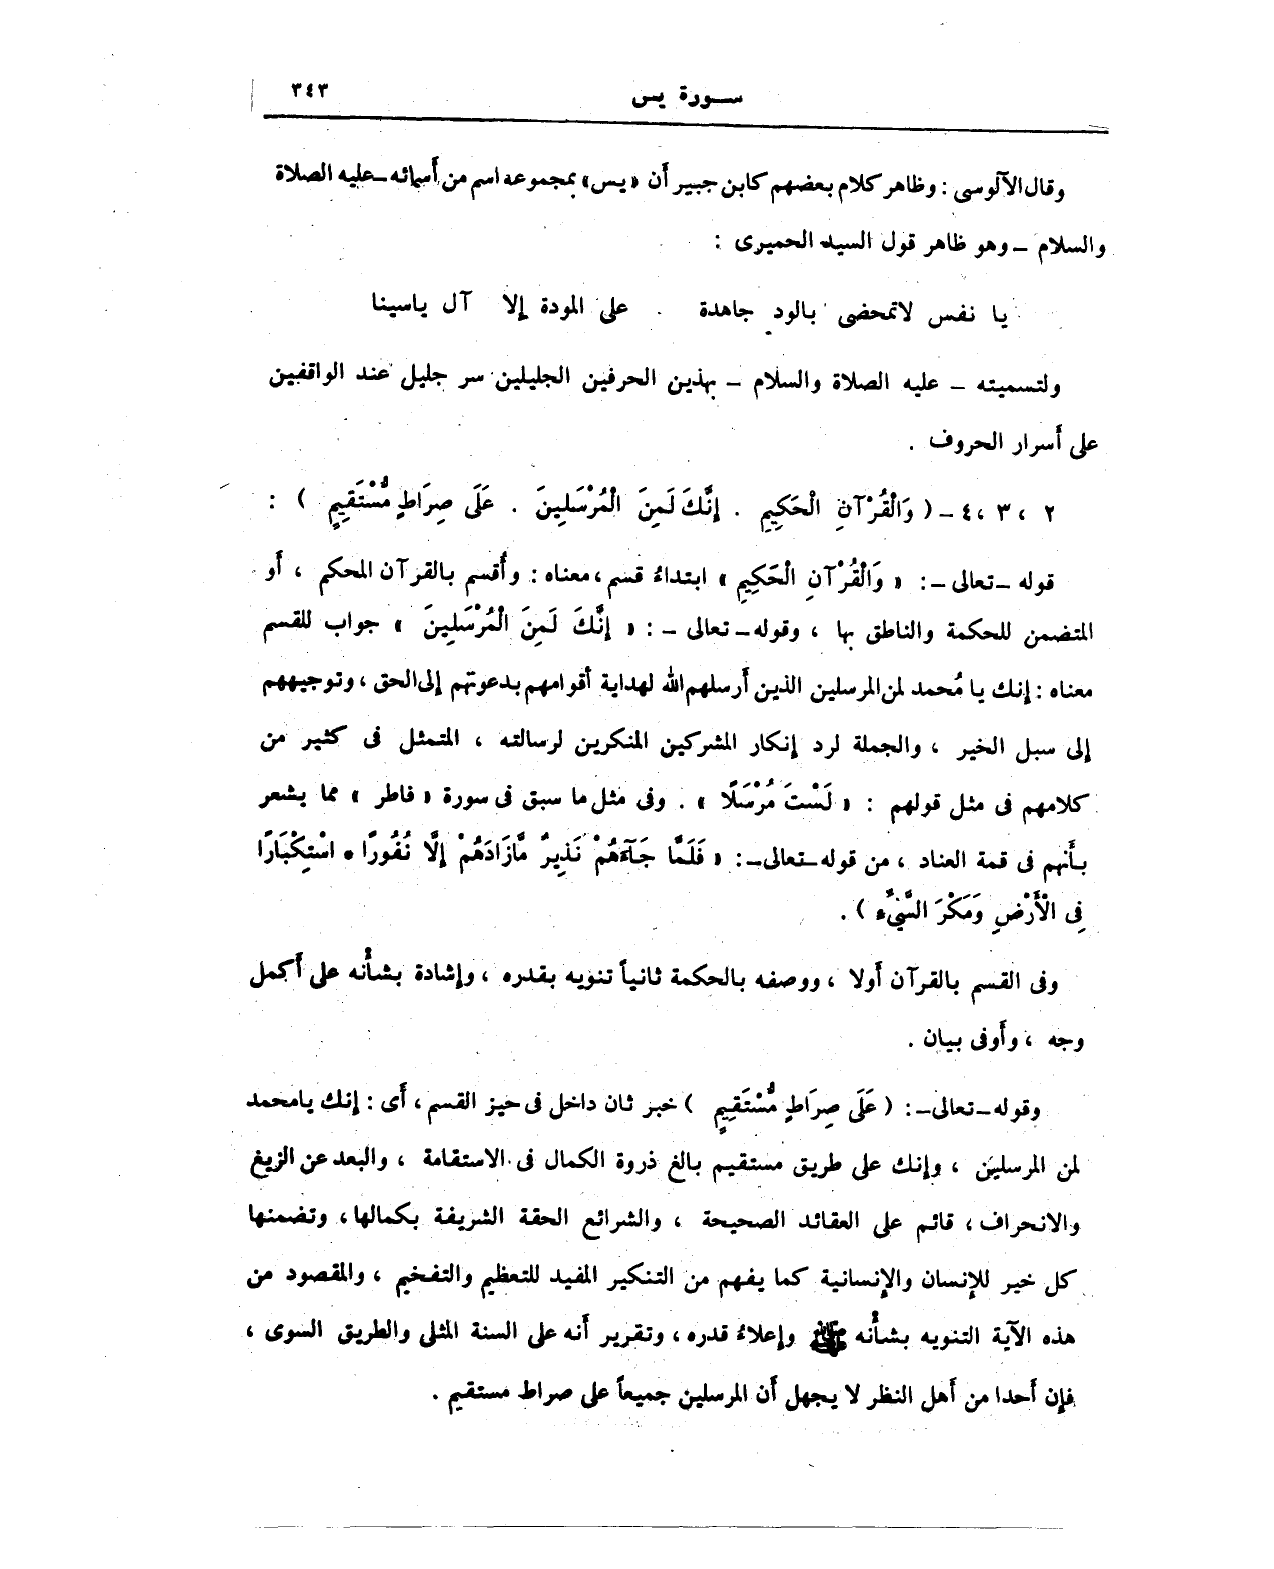 سورة يس ٣٤٣
وقال الآلوسى : وظاهر كلام بعضهم كابن جبير أن «يس» بمجموعه اسم من أسمائه ـ عليه الصلاة
والسلام ـ وهو ظاهر قول السيد الحميرى :
يا نفس لا تمحضى بالود جاهدة . على المودة إلا آل ياسينا
ولتسميته ـ عليه الصلاة والسلام ـ بهذين الحرفين الجليلين سر جليل عند الواقفين
على أسرار الحروف .
٢ ، ٣ ، ٤ ـ ( وَالْقُرْآنِ الْحَكِيمِ . إِنَّكَ لَمِنَ الْمُرْسَلِينَ . عَلَى صِرَاطٍ مُّسْتَقِيمٍ ) :
قوله ـ تعالى ـ : « وَالْقُرْآنِ الْحَكِيمِ » ابتداءُ قسم ، معناه : وأُقسم بالقرآن المحكم ، أو
المتضمن للحكمة والناطق بها ، وقوله ـ تعالى ـ : « إِنَّكَ لَمِنَ الْمُرْسَلِينَ » جواب للقسم
معناه : إنك يا مُحمد لمن المرسلين الذين أرسلهم الله لهداية أقوامهم بدعوتهم إلى الحق ، وتوجيههم
إلى سبل الخير ، والجملة لرد إنكار المشركين المنكرين لرسالته ، المتمثل فى كثير من
كلامهم فى مثل قولهم : « لَسْتَ مُرْسَلًا » . وفى مثل ما سبق فى سورة « فاطر » مما يشعر
بأنهم فى قمة العناد ، من قوله ـ تعالى ـ : « فَلَمَّا جَآءَهُمْ نَذِيرٌ مَّازَادَهُمْ إِلَّا نُفُورًا * اسْتِكْبَارًا
فِى الْأَرْضِ وَمَكْرَ السَّيِّىءِ ) .
وفى القسم بالقرآن أولا ، ووصفه بالحكمة ثانياً تنويه بقدره ، وإشادة بشأنه على أكمل
وجه ، وأوفى بيان .
وقوله ـ تعالى ـ : ( عَلَى صِرَاطٍ مُّسْتَقِيمٍ ) خبر ثان داخل فى حيز القسم ، أى : إنك يا محمد
لمن المرسلين ، وإنك على طريق مستقيم بالغ ذروة الكمال فى الاستقامة ، والبعد عن الزيغ
والانحراف ، قائم على العقائد الصحيحة ، والشرائع الحقة الشريفة بكمالها ، وتضمنها
كل خير للإنسان والإنسانية كما يفهم من التنكير المفيد للتعظيم والتفخيم ، والمقصود من
هذه الآية التنويه بشأنه ﷺ وإعلاءُ قدره ، وتقرير أنه على السنة المثلى والطريق السوى ،
فإن أحدا من أهل النظر لا يجهل أن المرسلين جميعاً على صراط مستقيم .